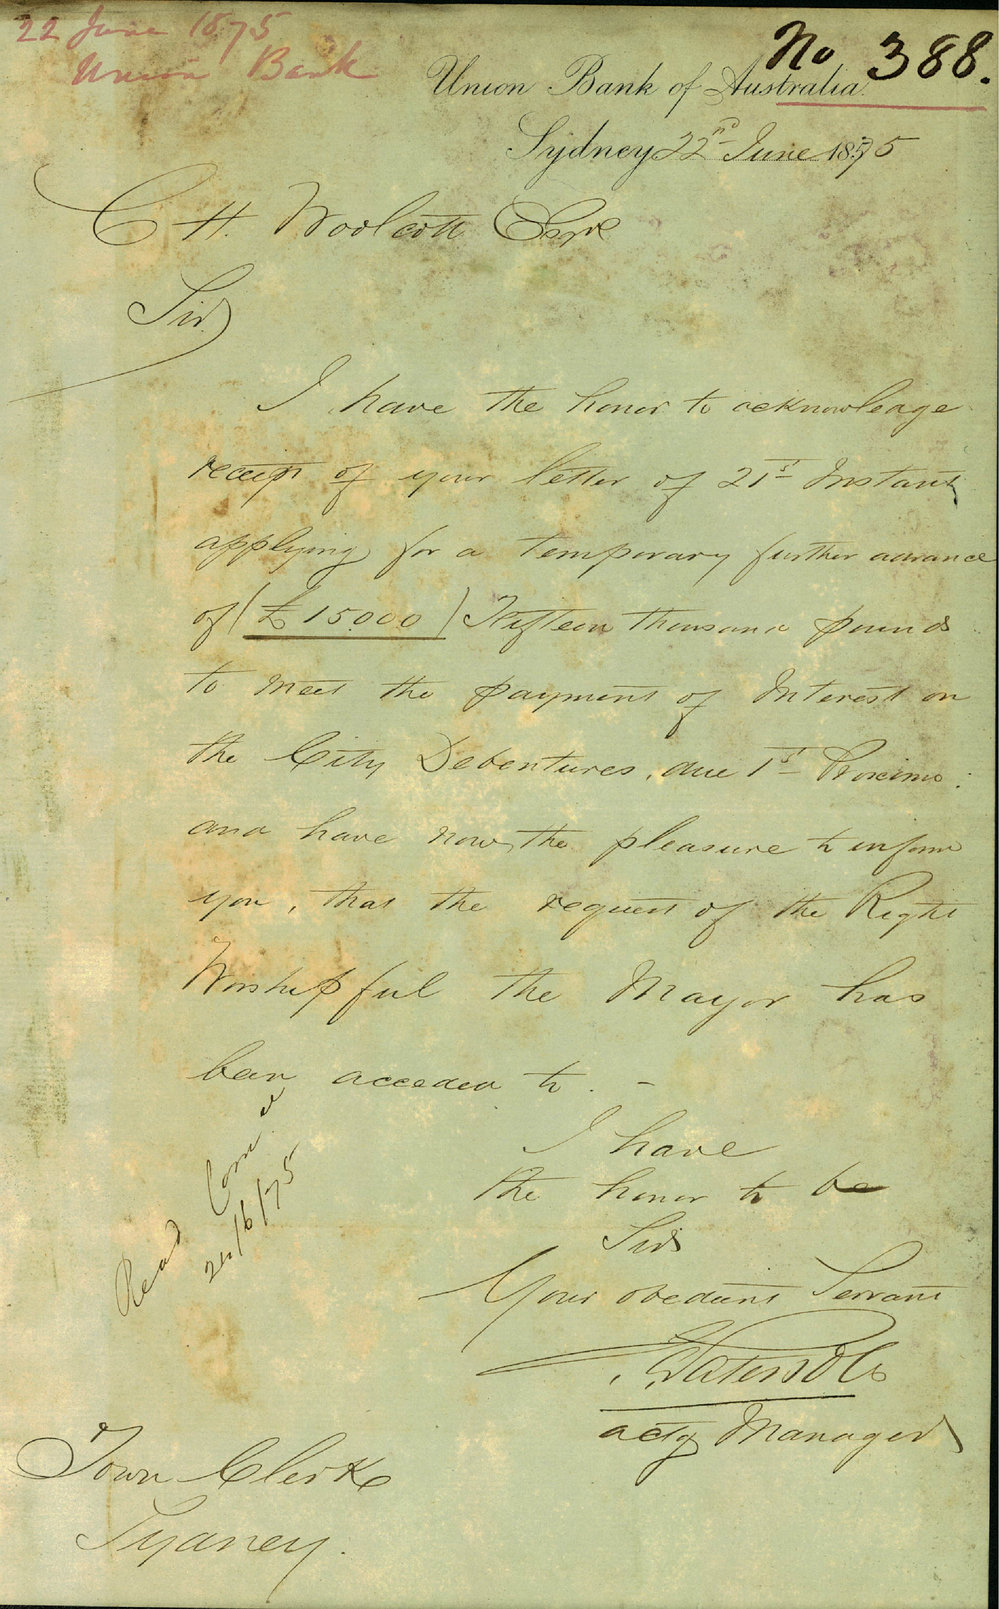 22 June 1875
Union Bank
No 388.
Union Bank of Australia
Sydney 22nd June 1875
C H. Woolcott Esqre
Sir
I have the honor to acknowledge
receipt of your letter of 21st Instant
applying for a temporary further advance
of (£15000) Fifteen thousand pounds
to meet the payment of Interest on
the City Debentures, due 1st Proximo.
and have now the pleasure to inform
you, that the request of the Right
Worshipful the Mayor has
been acceded to. -
I have
the honor to be
Sir
Your obedient Servant
actg Manager
Read Comee
24/6/75
Town Clerk
Sydney.